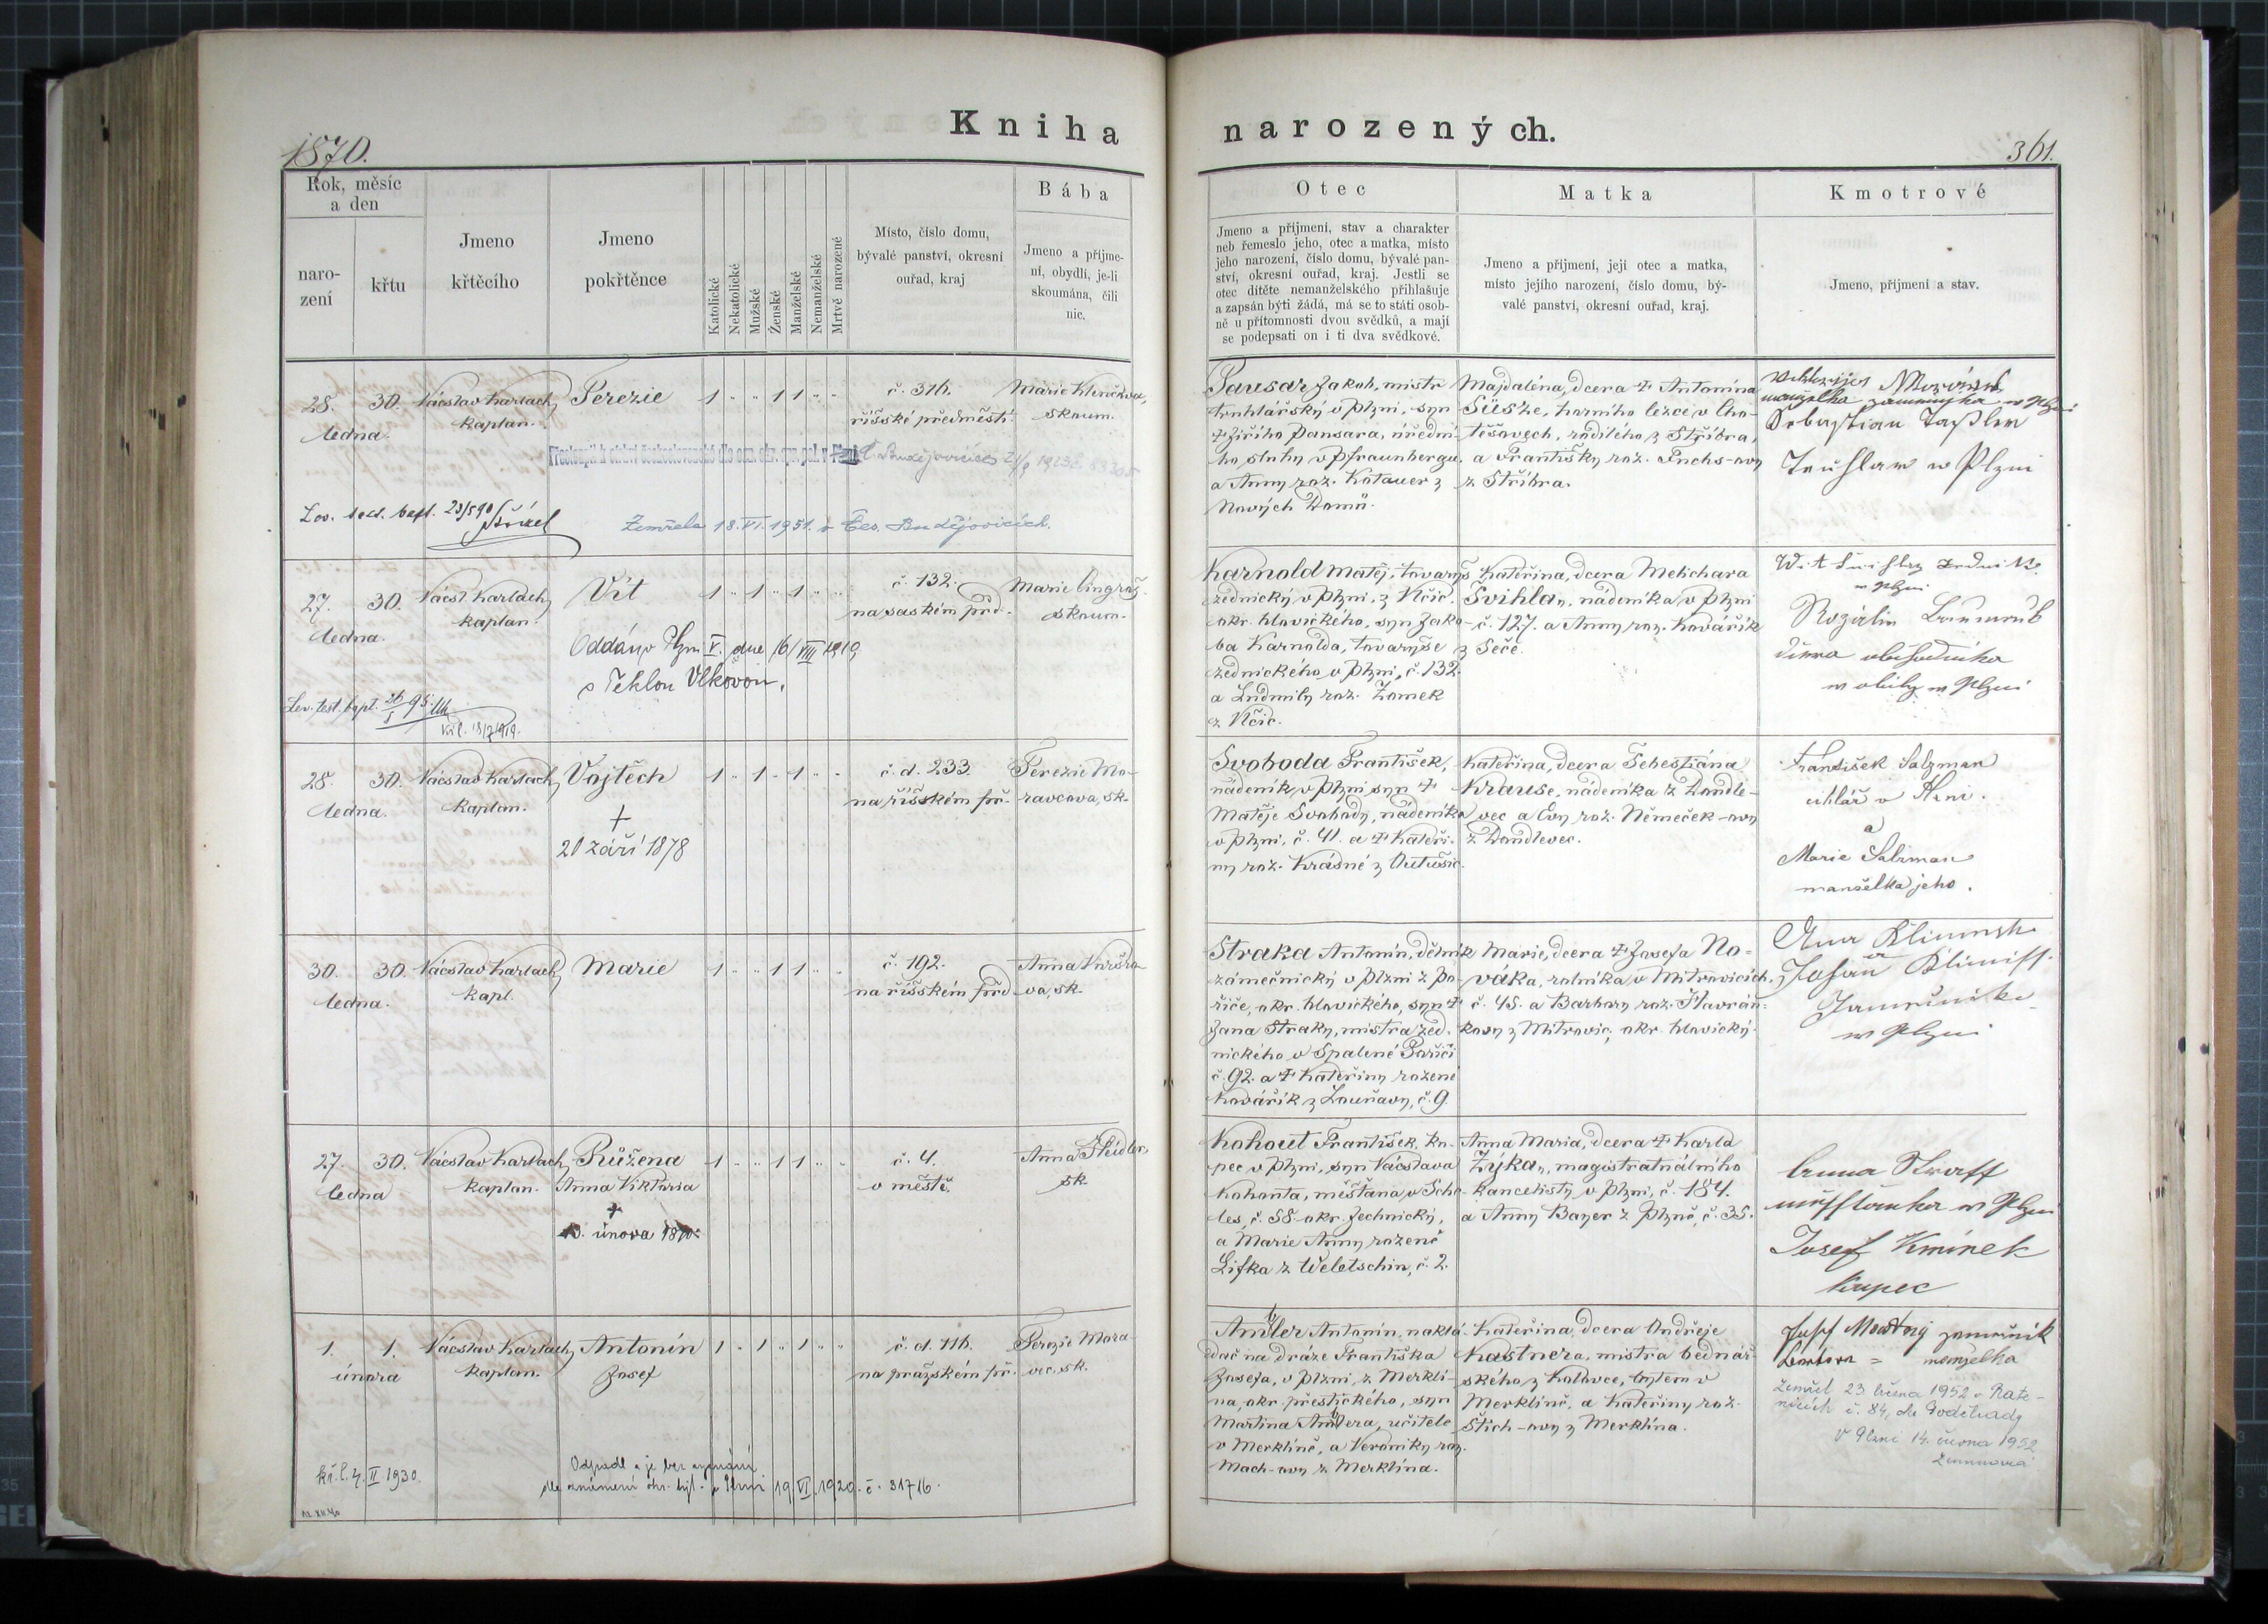 1870.
Kniha narozených.
361.
Rok, měsíc
a den
naro-
zení
křtu
Jmeno
křtěcího
Jmeno
pokřtěnce
Katolické
Nekatolické
Mužské
Ženské
Manželské
Nemanželské
Mrtvě narozené
Místo, číslo domu,
bývalé panství, okresní
ouřad, kraj
Bába
Jmeno a příjme-
ní, obydlí, je-li
skoumána, čili
nic.
Otec
Jmeno a příjmení, stav a charakter
neb řemeslo jeho, otec a matka, místo
jeho narození, číslo domu, bývalé pan-
ství, okresní ouřad, kraj. Jestli se
otec dítěte nemanželského přihlašuje
a zapsán býti žádá, má se to státi osob-
ně u přítomnosti dvou svědků, a mají
se podepsati on i ti dva svědkové.
Matka
Jmeno a příjmení, její otec a matka,
místo jejího narození, číslo domu, bý-
valé panství, okresní ouřad, kraj.
Kmotrové
Jmeno, příjmení a stav.
28. 30.
ledna.
Vácslav Karlach,
kaplan.
Terezie
1 " " 1 1 " "
č. 316.
říšské předměstí.
Marie
skoum.
Zemřela 18. VI. 1951. v Čes. Budějovicích.
Pansar Jakob, mistr
truhlářský v Plzni, syn
† Jiřího Pansara, úřední-
ho sluhy v Pfraunbergu,
a Anny roz. Kotauer z
Nových Domů.
Majdaléna, dcera † Antonína
Süsze, horního lezce v Cho-
těšovech, rodilého z Stříbra,
a Františky roz. Fuchs-ovy
z Stříbra.
manželka w Plzni
Sebastian
w Plzni
27. 30.
ledna.
Vácsl. Karlach,
kaplan.
Vít
1 " 1 " 1 " "
č. 132.
na saském př.
Marie
skoum.
Oddán v Plzni V. dne 16/VIII 1919
s Teklou Vlkovou.
Karnold Matěj, tovaryš
zednický v Plzni, z Včic,
okr. blovického, syn Jako-
ba Karnolda, tovaryše
zednického v Plzni, č. 132.
a Ludmily roz. Zamek
z Včic.
Kateřina, dcera Melichara
Švihly, nádeníka v Plzni
č. 127. a Anny roz. Kovářík
z Seče.
w Plzni
Rozálie
w Plzni
28. 30.
ledna.
Vácslav Karlach,
kaplan.
Vojtěch
†
20 září 1878
1 " 1 " 1 " "
č. d. 233.
na říšském př.
Terezie Mo-
ravcova, sk.
Svoboda František,
nádeník v Plzni syn †
Matěje Svobody, nádeníka
v Plzni, č. 41. a † Kateři-
ny roz. Krásné z Dutušic.
Kateřina, dcera Šebestiána
Krause, nádeníka z Dondle-
vec a Evy roz. Němeček-ovy
z Dondlevec.
František Salzman
cihlář v Plzni.
a
Marie Salzman
manželka jeho.
30. 30.
ledna.
Vácslav Karlach,
kapl.
Marie
1 " " 1 1 " "
č. 192.
na říšském před
Anna
va, sk.
Straka Antonín, dělník
zámečnický v Plzni z Po-
říče, okr. blovického, syn †
Jana Straky, mistra zed-
nického v Spalené Poříči
č. 92. a † Kateřiny rozené
Kovářík z Louňovy, č. 9.
Marie, dcera † Josefa No-
váka, rolníka v Mitrovicích,
č. 45. a Barbory roz. Havrán-
kovy z Mitrovic, okr. blovický.
w Plzni
27. 30.
ledna
Vácslav Karlach,
kaplan.
Růžena
Anna Viktoria
†
února 1870.
1 " " 1 1 " "
č. 4.
v městě.
Anna Steidler,
sk.
Kohout František, ku-
pec v Plzni, syn Vácslava
Kohouta, měšťana v Scho-
les, č. 58. okr. Jechnický,
a Marie Anny rozené
Lifka z Weletschin, č. 2.
Anna Maria, dcera † Karla
Zýka, magistratuálního
kancelisty v Plzni, č. 184.
a Anny Bayer z Plzně, č. 35.
Anna
w Plzni
Josef Kmínek
kupec
1. 1.
února
Vácslav Karlach,
kaplan.
Antonín
Josef
1 " 1 " 1 " "
č. d. 116.
na pražském př.
Terezie Mora-
vec, sk.
kř. l. 4. II 1930.
Odpadl a je bez vyznání
dle oznámení v Plzni 19 VI. 1920. č. 31716.
Antonín, naklá-
dač na dráze Františka
Josefa, v Plzni, z Merklí-
na, okr. přestického, syn
Martina učitele
v Merklíně, a Veroniky roz.
Mach-ovy z Merklína.
Kateřina, dcera Ondřeje
Kastnera, mistra bednář-
ského z Kolovce, bytem v
Merklíně, a Kateřiny roz.
Štich-ovy z Merklína.
Josef
manželka
Zemřel 23 1952 v Rate-
nicích č. 84, okr. Poděbrady
V Plzni 14. února 1952